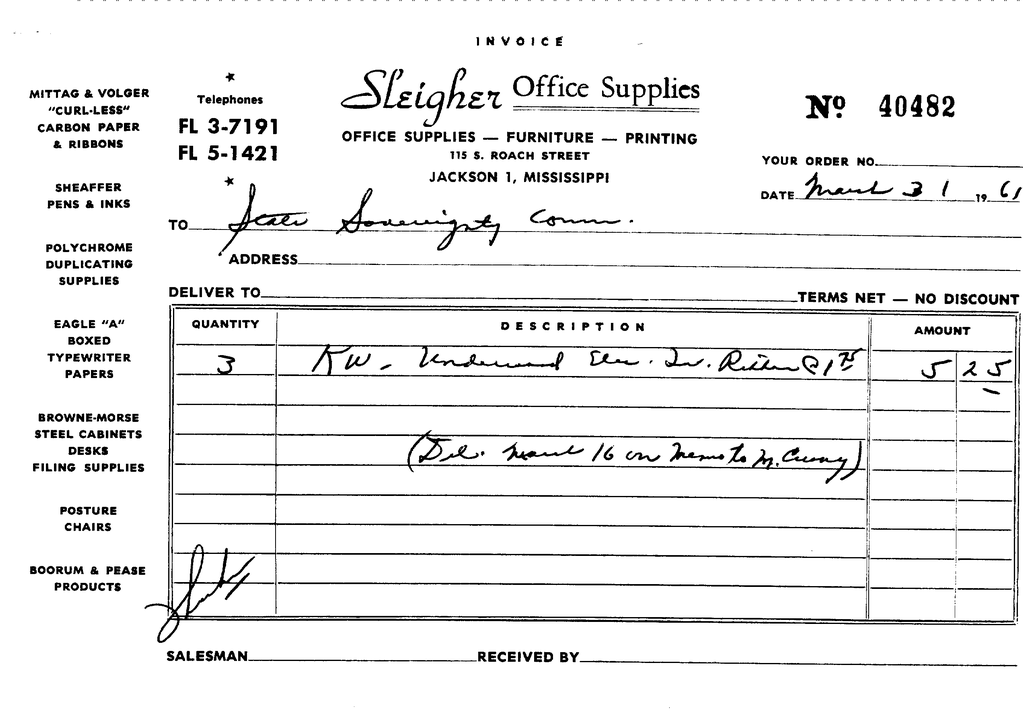 INVOICE
MITTAG & VOLGER
"CURL-LESS"
CARBON PAPER
& RIBBONS
SHEAFFER
PENS & INKS
POLYCHROME
DUPLICATING
SUPPLIES
EAGLE "A"
BOXED
TYPEWRITER
PAPERS
BROWNE-MORSE
STEEL CABINETS
DESKS
FILING SUPPLIES
POSTURE
CHAIRS
BOORUM & PEASE
PRODUCTS
Telephones
FL 3-7191
FL 5-1421
Sleigher Office Supplies
OFFICE SUPPLIES — FURNITURE — PRINTING
115 S. ROACH STREET
JACKSON 1, MISSISSIPPI
Nº 40482
YOUR ORDER NO.
DATE March 31 1961
TO State Sovereignty Comm.
ADDRESS
DELIVER TO TERMS NET — NO DISCOUNT
QUANTITY DESCRIPTION AMOUNT
3 KW - Underwood Elec. Ribbon @ 1 75 5 25
(Del. March 16 on Memo to)
SALESMAN RECEIVED BY